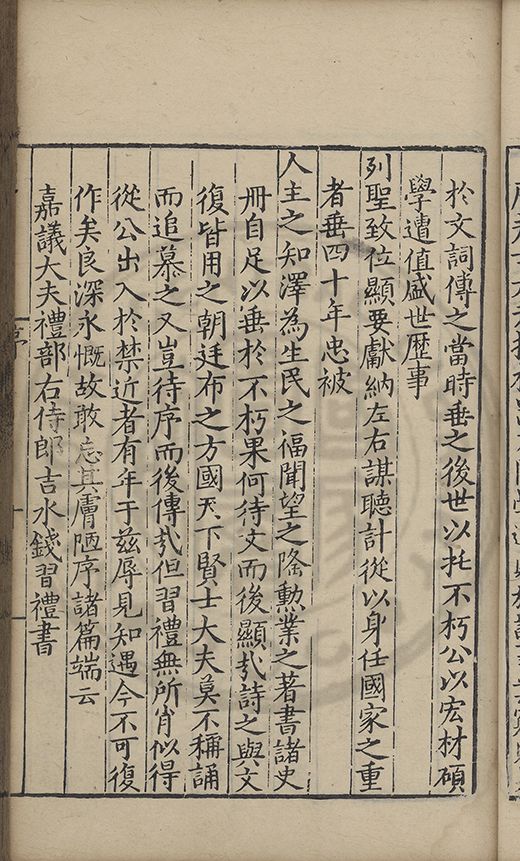 於文詞傳之當時垂之後世以托不朽公以宏材碩
學遭值盛世歷事
列聖致位顯要獻納左右謀聽計從以身任國家之重
者垂四十年忠被
人主之知澤為生民之福聞望之隆勲業之著書諸史
冊自足以垂於不朽果何待文而後顯㢤詩之與文
復皆用之朝廷布之方國天下賢士大夫莫不稱誦
而追慕之又豈待序而後傳㢤但習禮無所肖似得
從公出入於禁近者有年于兹辱見知遇今不可復
作矣良深永慨故敢忘其膚陋序諸篇端云
嘉議大夫禮部右侍郎吉水錢習禮書